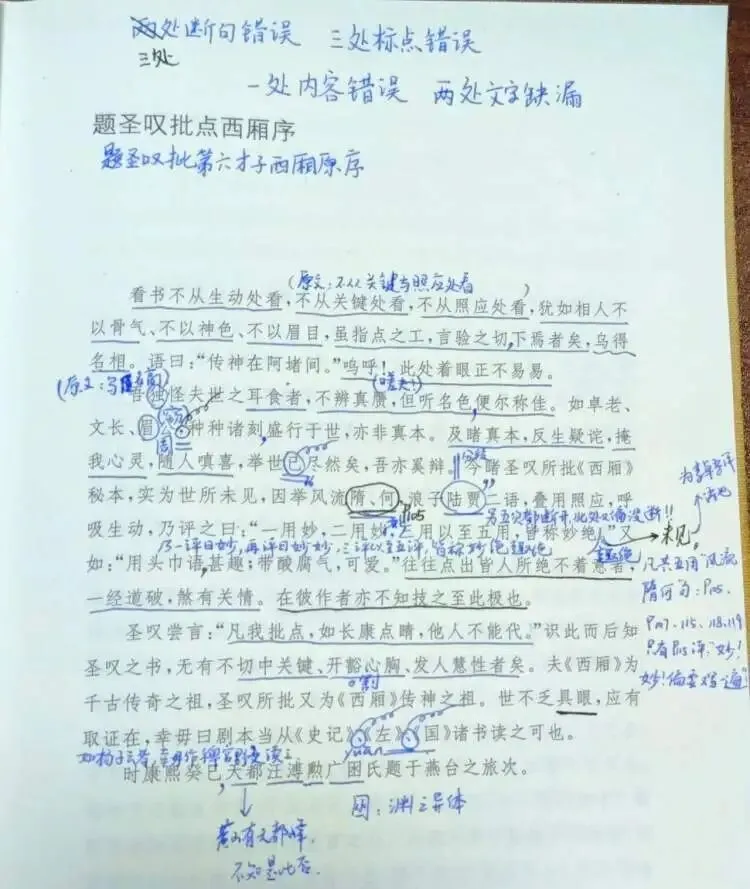 两处断句错误 三处标点错误
三处
一处内容错误 两处文字缺漏
题圣叹批点西厢序
题圣叹批第六才子西厢原序
(原文:不从关键与照应处看)
看书不从生动处看,不从关键处看,不从照应处看,犹如相人不
以骨气、不以神色、不以眉目,虽指点之工,言验之切,下焉者矣,乌得
名相。语曰:“传神在阿堵间。”呜呼!此处着眼正不易易。
(嗟夫!)
吾独怪夫世之耳食者,不辨真赝,但听名色,便尔称佳。如卓老、
文长、眉公,种种诸刻,盛行于世,亦非真本。及睹真本,反生疑诧,掩
我心灵,随人嗔喜,举世已尽然矣,吾亦奚辩。今睹圣叹所批《西厢》
秘本,实为世所未见,因举风流隋、何,浪子陆贾二语,叠用照应,呼
P105
吸生动,乃评之曰:“一用妙,二用妙,三用以至五用,皆称妙绝。”又
乃一评曰妙,再评曰妙妙,三评以至五评,皆称妙绝趣绝
如:“用头巾语,甚趣;带酸腐气,可爱。”往往点出皆人所绝不着意者,
一经道破,煞有关情。在彼作者亦不知技之至此极也。
未见
凡共五用“风流
隋何”句:P105、
P107、115、118、119
只有P115评:“妙!
圣叹尝言:“凡我批点,如长康点睛,他人不能代。”识此而后知
圣叹之书,无有不切中关键、开豁心胸、发人慧性者矣。夫《西厢》为
千古传奇之祖,圣叹所批又为《西厢》传神之祖。世不乏具眼,应有
取证在,幸毋曰剧本当从《史记》《左》《国》诸书读之可也。
yuān
时康熙癸巳天都汪溥勲广囦氏题于燕台之旅次。
囦:渊之异体
黄山有天都峰,
不知是此否.